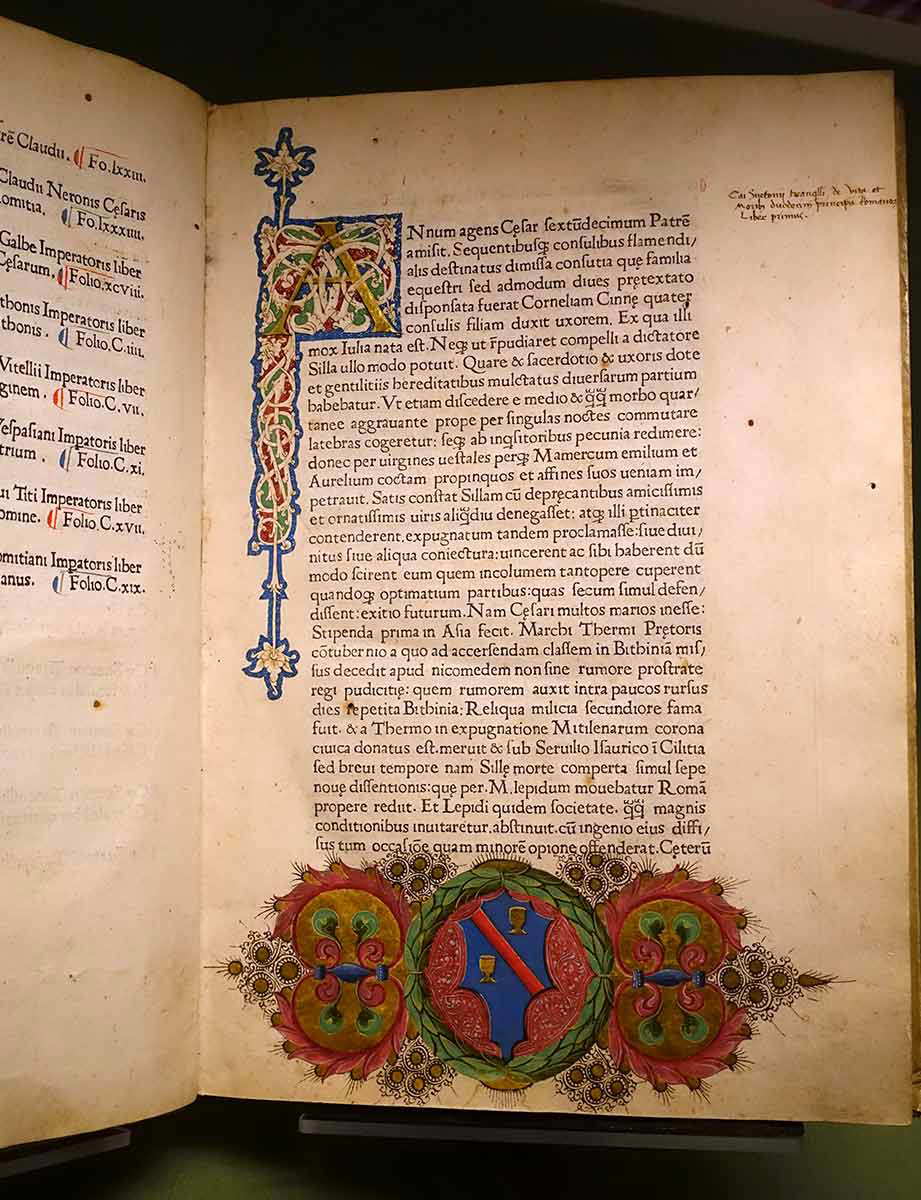 rē Claudii. Fo.lxxiii.
Claudii Neronis Cęsaris
omitia. Fo.lxxxiiii.
Galbe Imperatoris liber
Cęsarum. Folio.xcviii.
thonis Imperatoris liber
thonis. Folio.C.iiii.
Vitellii Imperatoris liber
ginem. Folio.C.vii.
espasiani Impatoris liber
trium. Folio.C.xi.
ui Titi Imperatoris liber
omine. Folio.C.xvii.
omitiani Impatoris liber
anus. Folio.C.xix.
Cai Suetonij tranqlli de Vita et
Morib duodecim principu romanor
Liber primus.
ANnum agens Cęsar sextūdecimum Patrē
amisit. Sequentibusq; consulibus flamendi/
alis destinatus dimissa consutia quę familia
equestri sed admodum diues prętextato
disponsata fuerat Corneliam Cinnę quater
consulis filiam duxit uxorem. Ex qua illi
mox Iulia nata est. Neq; ut r̄pudiaret compelli a dictatore
Silla ullo modo potuit. Quare & sacerdotio & uxoris dote
et gentilitiis hereditatibus mulctatus diuersarum partium
habebatur. Vt etiam discedere e medio & q̄q̄ morbo quar/
tanee aggrauante prope per singulas noctes commutare
latebras cogeretur: seq; ab inqsitoribus pecunia redimere:
donec per uirgines uestales perq; Mamercum emilium et
Aurelium coctam propinquos et affines suos ueniam im/
petrauit. Satis constat Sillam cū deprecantibus amicissimis
et ornatissimis uiris aliqdiu denegasset: atq; illi ptinaciter
contenderent. expugnatum tandem proclamasse: siue diui/
nitus siue aliqua coniectura: uincerent ac sibi haberent dū
modo scirent eum quem incolumem tantopere cuperent
quandoq; optimatium partibus: quas secum simul defen/
dissent: exitio futurum. Nam Cęsari multos marios inesse:
Stipenda prima in Asia fecit. Marchi Thermi Prętoris
cōtubernio a quo ad accersendam classem in Bithiniā mis/
sus decedit apud nicomedem non sine rumore prostrate
regi pudicitię: quem rumorem auxit intra paucos rursus
dies repetita Bithinia: Reliqua milicia secundiore fama
fuit. & a Thermo in expugnatione Mitilenarum corona
ciuica donatus est. meruit & sub Seruilio Isaurico ī Cilitia
sed breui tempore nam Sillę morte comperta simul sepe
nouę dissentionis: quę per. M. lepidum mouebatur Romā
propere rediit. Et Lepidi quidem societate. q̄q̄ magnis
conditionibus inuitaretur. abstinuit. cū ingenio eius diffi/
sus tum occasiōe quam minorē opione offenderat. Cęterū